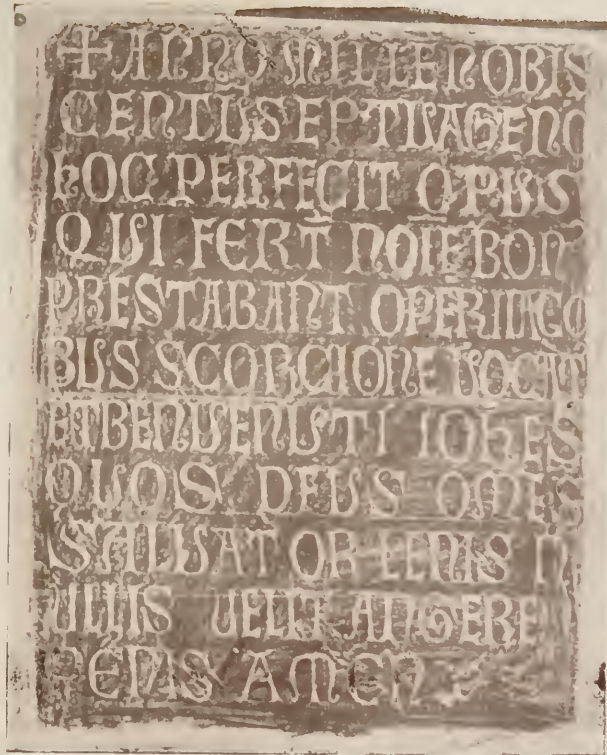 ✠ ANNO MILLENO BIS
CENTUS EPTUAGENO
HOC PERFECIT OPUS
QUI FERT NOIE BON
PRESTABANT OPERI IACO
BUS SCORCIONE VOCAT
ET BENVENUTI IOHES
QUOS DEUS OMES
SALVAT OB LENIS N
ULLIS VELIT ANGERE
PENIS AMEN